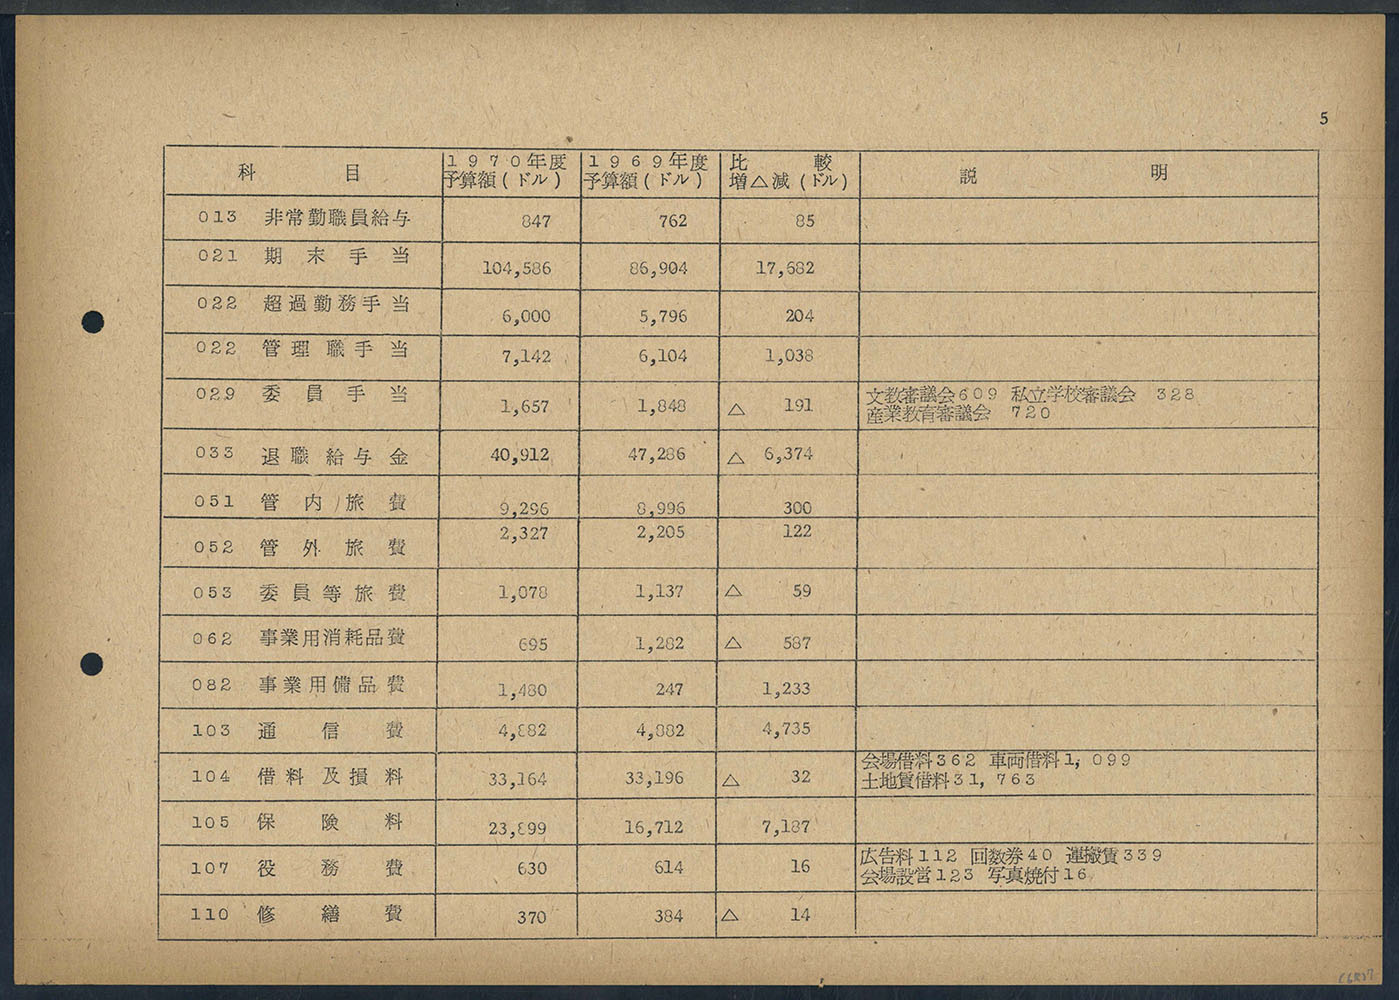 5
科 目 1970年度予算額(ドル) 1969年度予算額(ドル) 比較増△減(ドル) 説 明
013 非常勤職員給与 847 762 85
021 期末手当 104,586 86,904 17,682
022 超過勤務手当 6,000 5,796 204
022 管理職手当 7,142 6,104 1,038
029 委員手当 1,657 1,848 △ 191 文教審議会609 私立学校審議会 328
産業教育審議会 720
033 退職給与金 40,912 47,286 △ 6,374
051 管内旅費 9,296 8,996 300
052 管外旅費 2,327 2,205 122
053 委員等旅費 1,078 1,137 △ 59
062 事業用消耗品費 695 1,282 △ 587
082 事業用備品費 1,480 247 1,233
103 通信費 4,882 4,882 4,735
104 借料及損料 33,164 33,196 △ 32 会場借料362 車両借料1,099
土地賃借料31,763
105 保険料 23,899 16,712 7,187
107 役務費 630 614 16 広告料112 回数券40 運搬賃339
会場設営123 写真焼付16
110 修繕費 370 384 △ 14